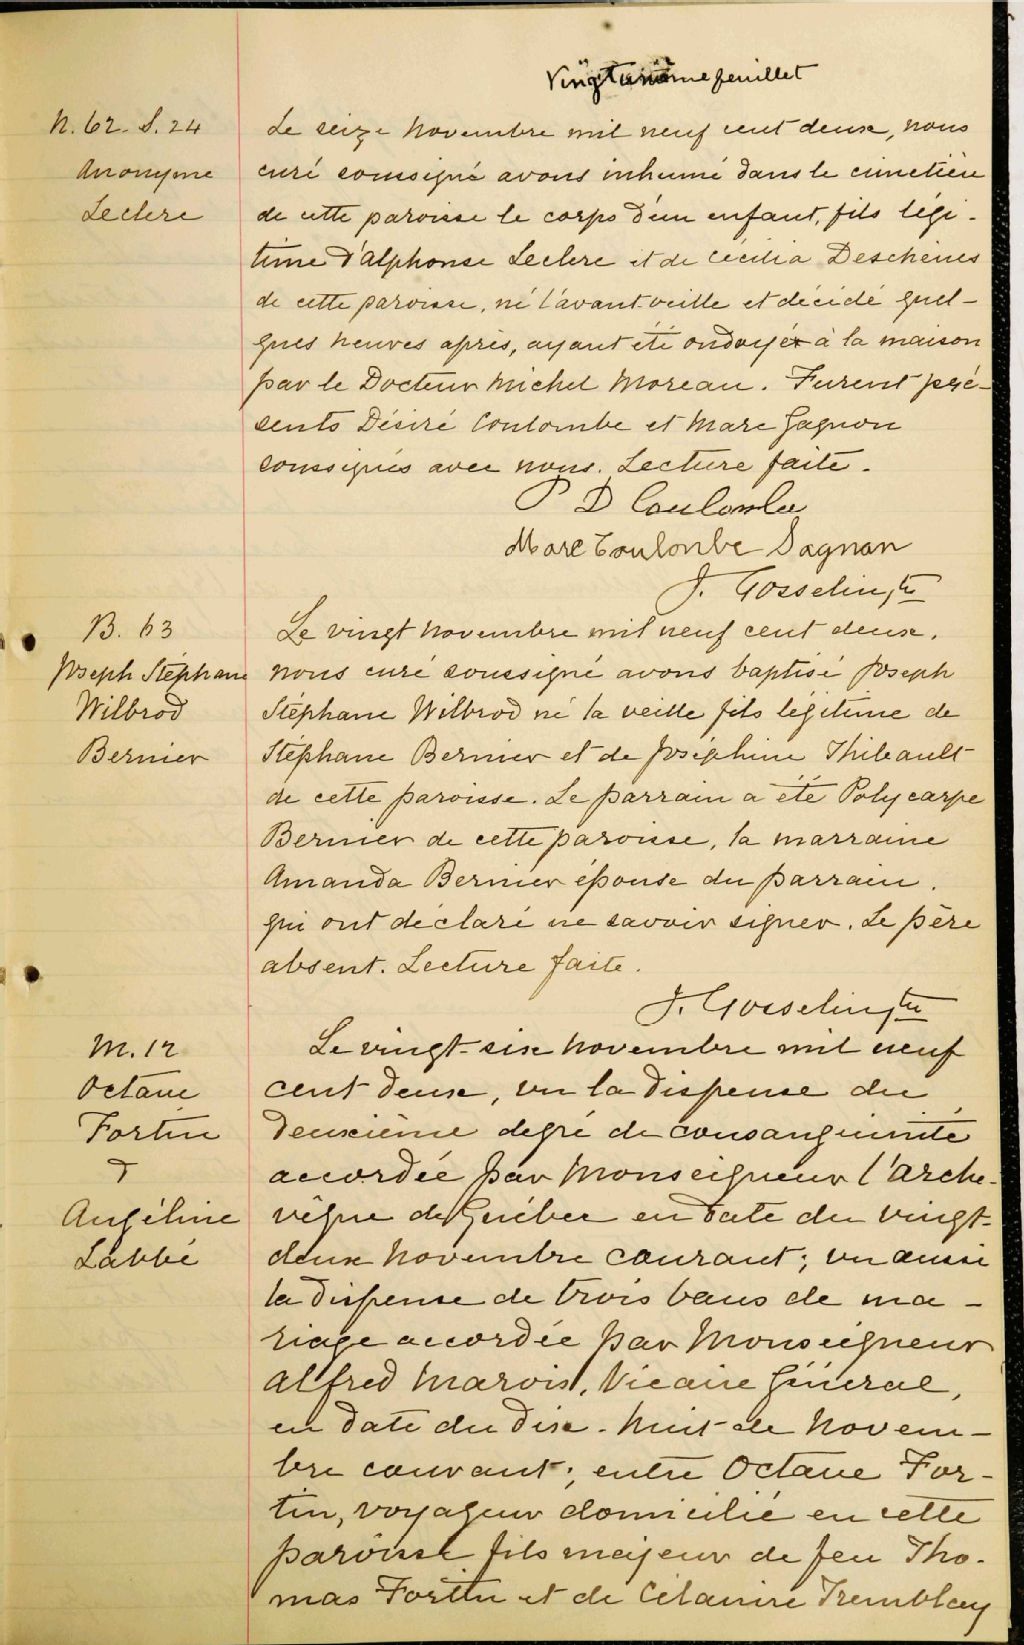 Vingtunième feuillet
N. 62. S. 24
Anonyme
Leclerc
Le seize novembre mil neuf cent deux, nous
curé soussigné avons inhumé dans le cimetière
de cette paroisse le corps d'un enfant, fils légi-
time d'Alphonse Leclerc et de Cécilia Deschênes
de cette paroisse, né l'avant veille et décédé quel-
ques heures après, ayant été ondoyé à la maison
par le Docteur Michel Moreau. Furent pré-
sents Désiré Coulombe et Marc Gagnon
soussignés avec nous. Lecture faite.
P D Coulombe
Marc Coulombe Gagnon
J. Gosselin, ptre
B. 63
Joseph Stéphane
Wilbrod
Bernier
Le vingt novembre mil neuf cent deux,
nous curé soussigné avons baptisé Joseph
Stéphane Wilbrod né la veille fils légitime de
Stéphane Bernier et de Joséphine Thibault
de cette paroisse. Le parrain a été Polycarpe
Bernier de cette paroisse, la marraine
Amanda Bernier épouse du parrain,
qui ont déclaré ne savoir signer. Le père
absent. Lecture faite.
J. Gosselin, ptre
M. 12
Octave
Fortin
&
Angéline
Labbé
Le vingt-six novembre mil neuf
cent deux, vu la dispense du
deuxième degré de consanguinité
accordée par Monseigneur l'Arche-
vêque de Québec en date du vingt-
deux novembre courant; vu aussi
la dispense de trois bans de ma-
riage accordée par Monseigneur
Alfred Marois, Vicaire Général,
en date du dix-huit de novem-
bre courant; entre Octave For-
tin, voyageur domicilié en cette
paroisse fils majeur de feu Tho-
mas Fortin et de Célanire Tremblay